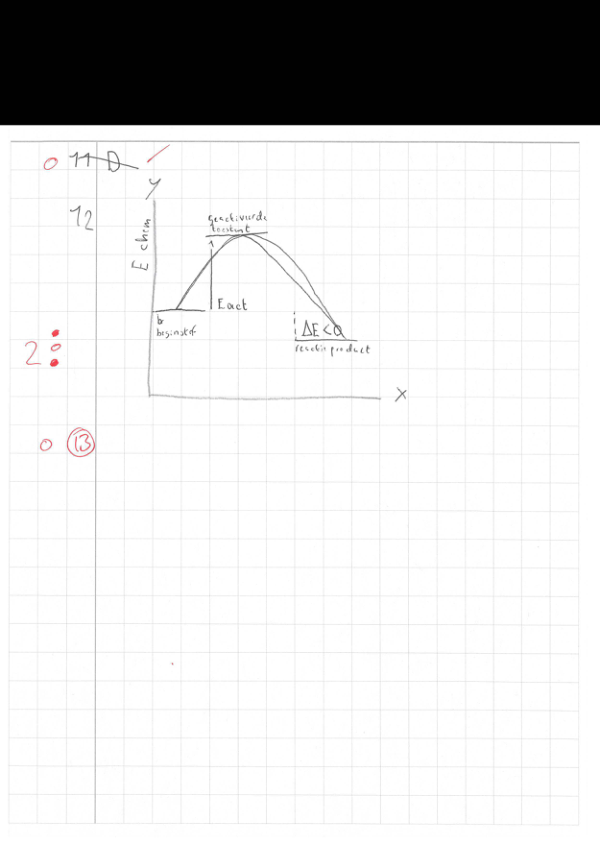 0 11 D
Y
12
E chim
geactiveerde
toestand
Eact
b
beginstof
ΔE < 0
reactieproduct
2
X
0 13